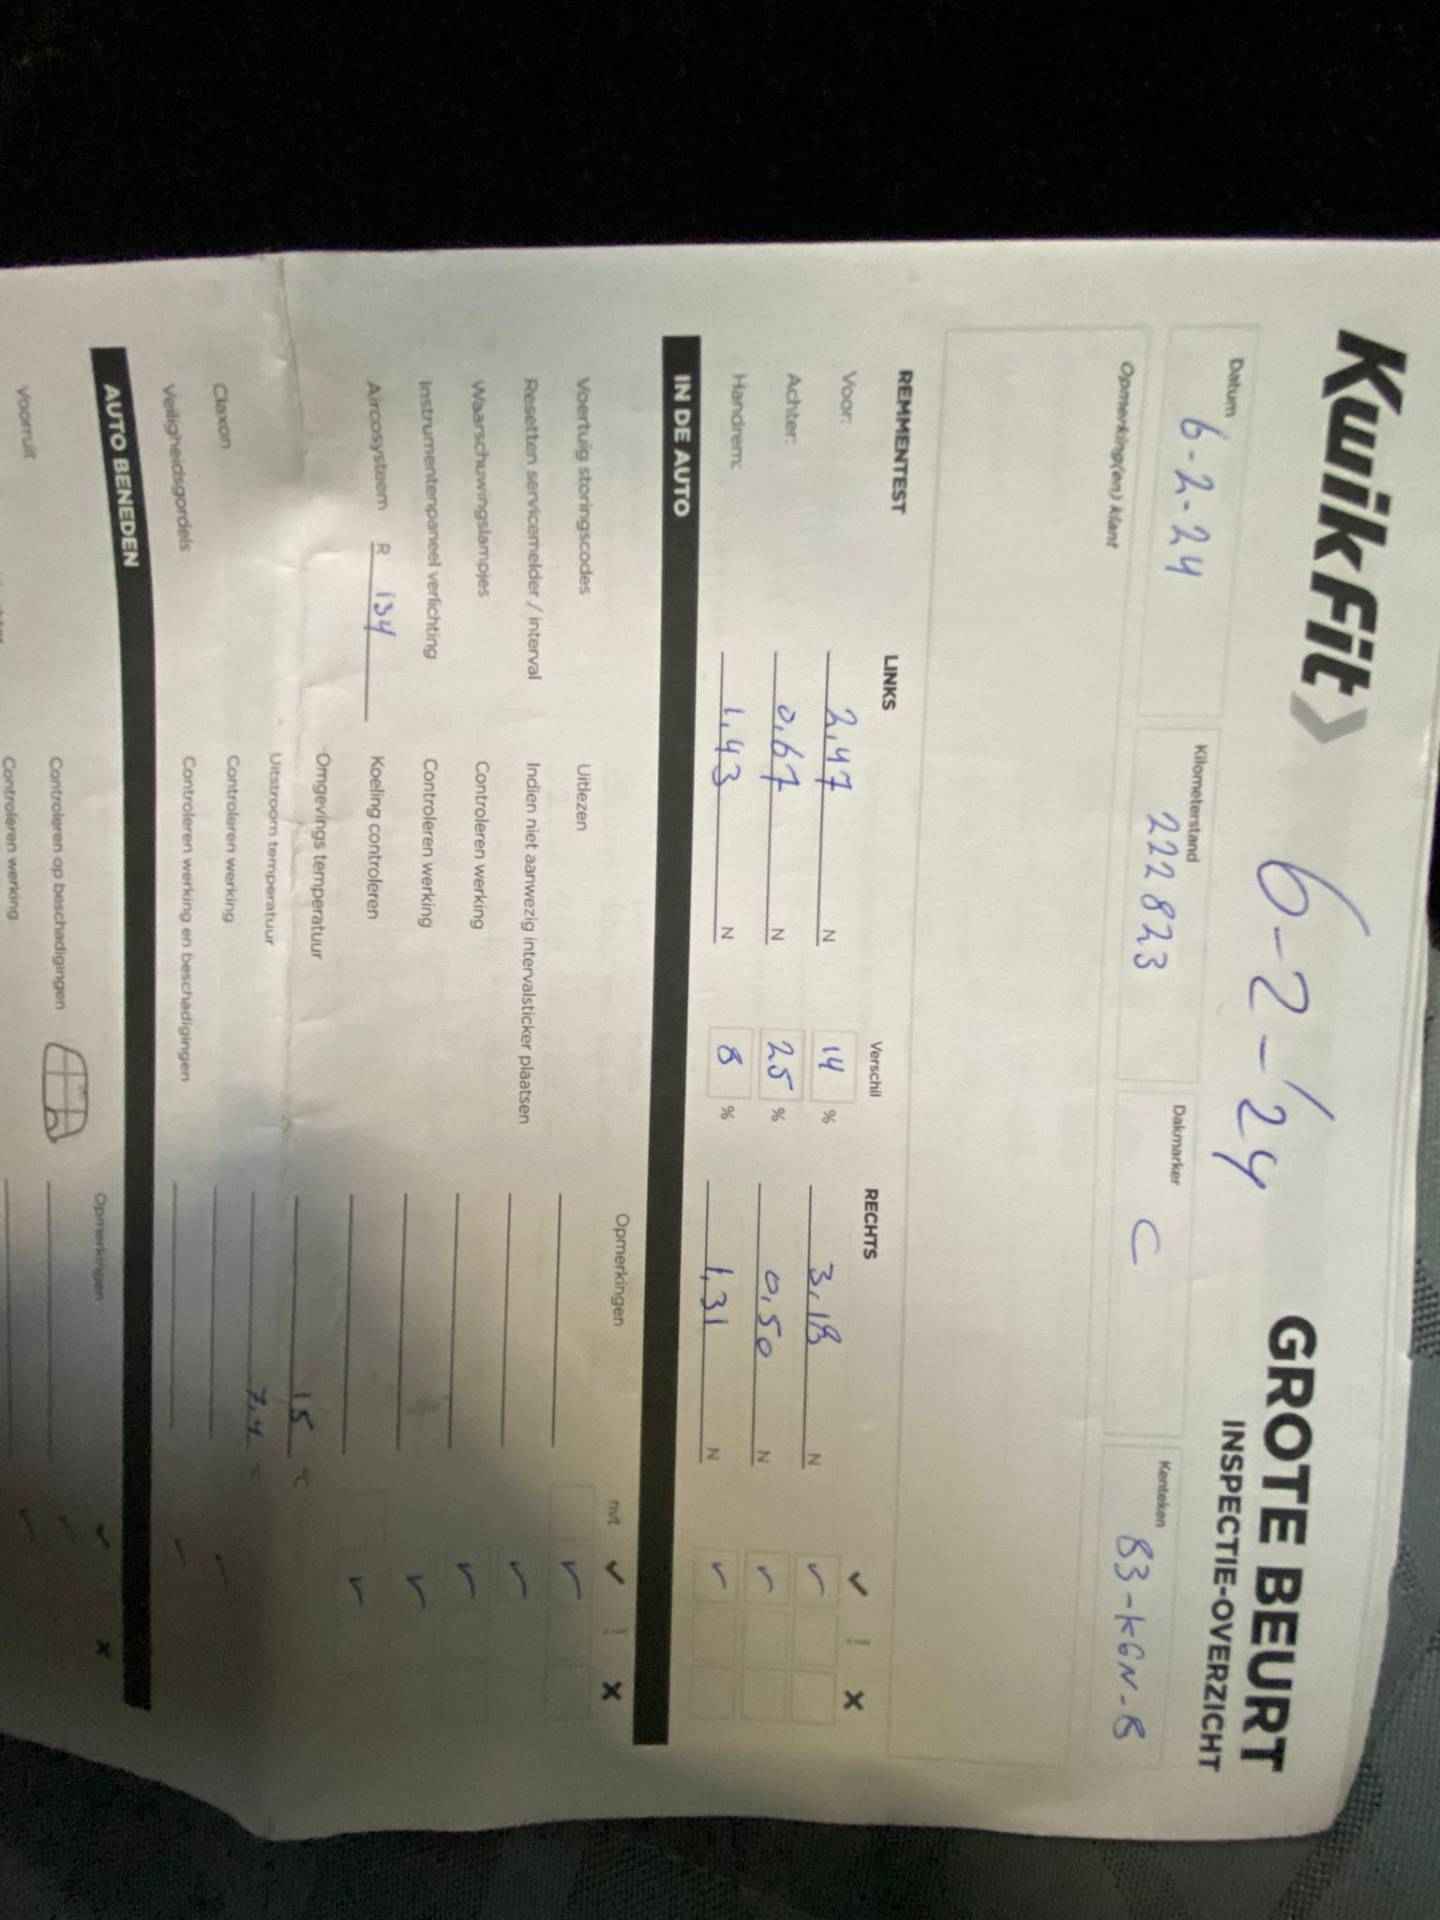 KwikFit
6-2-'24
GROTE BEURT
INSPECTIE-OVERZICHT
Datum Kilometerstand Dakmarker Kenteken
6-2-24 222823 C 83-KGN-8
Opmerking(en) klant
REMMENTEST LINKS Verschil RECHTS ✓ ! X
Voor: 2,47 N 14 % 3,18 N ✓
Achter: 0,67 N 25 % 0,50 N ✓
Handrem: 1,43 N 8 % 1,31 N ✓
IN DE AUTO
Opmerkingen nvt ✓ ! X
Voertuig storingscodes Uitlezen ✓
Resetten servicemelder / interval Indien niet aanwezig intervalsticker plaatsen ✓
Waarschuwingslampjes Controleren werking ✓
Instrumentenpaneel verlichting Controleren werking ✓
Aircosysteem R 134 Koeling controleren ✓
Omgevings temperatuur 15 °C
Uitstroom temperatuur 7,4 °C
Claxon Controleren werking ✓
Veiligheidsgordels Controleren werking en beschadigingen ✓
AUTO BENEDEN
Opmerkingen ✓ X
Voorruit Controleren op beschadigingen ✓
Controleren werking ✓